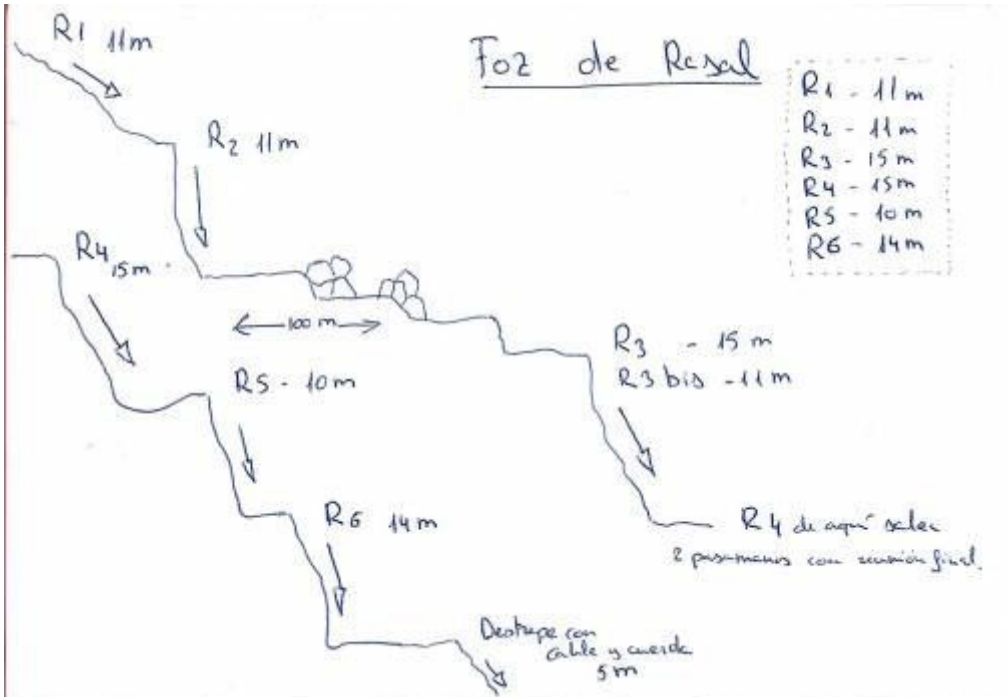 R1 11m
Foz de Rasal
R1 - 11m
R2 - 11m
R3 - 15m
R4 - 15m
R5 - 10m
R6 - 14m
R2 11m
R4 15m.
100 m
R3 - 15 m
R3 bis - 11m
R5 - 10m
R6 14m
R4 de aquí salen
2 pasamanos con reunión final.
Destrepe con
cable y cuerda
5 m